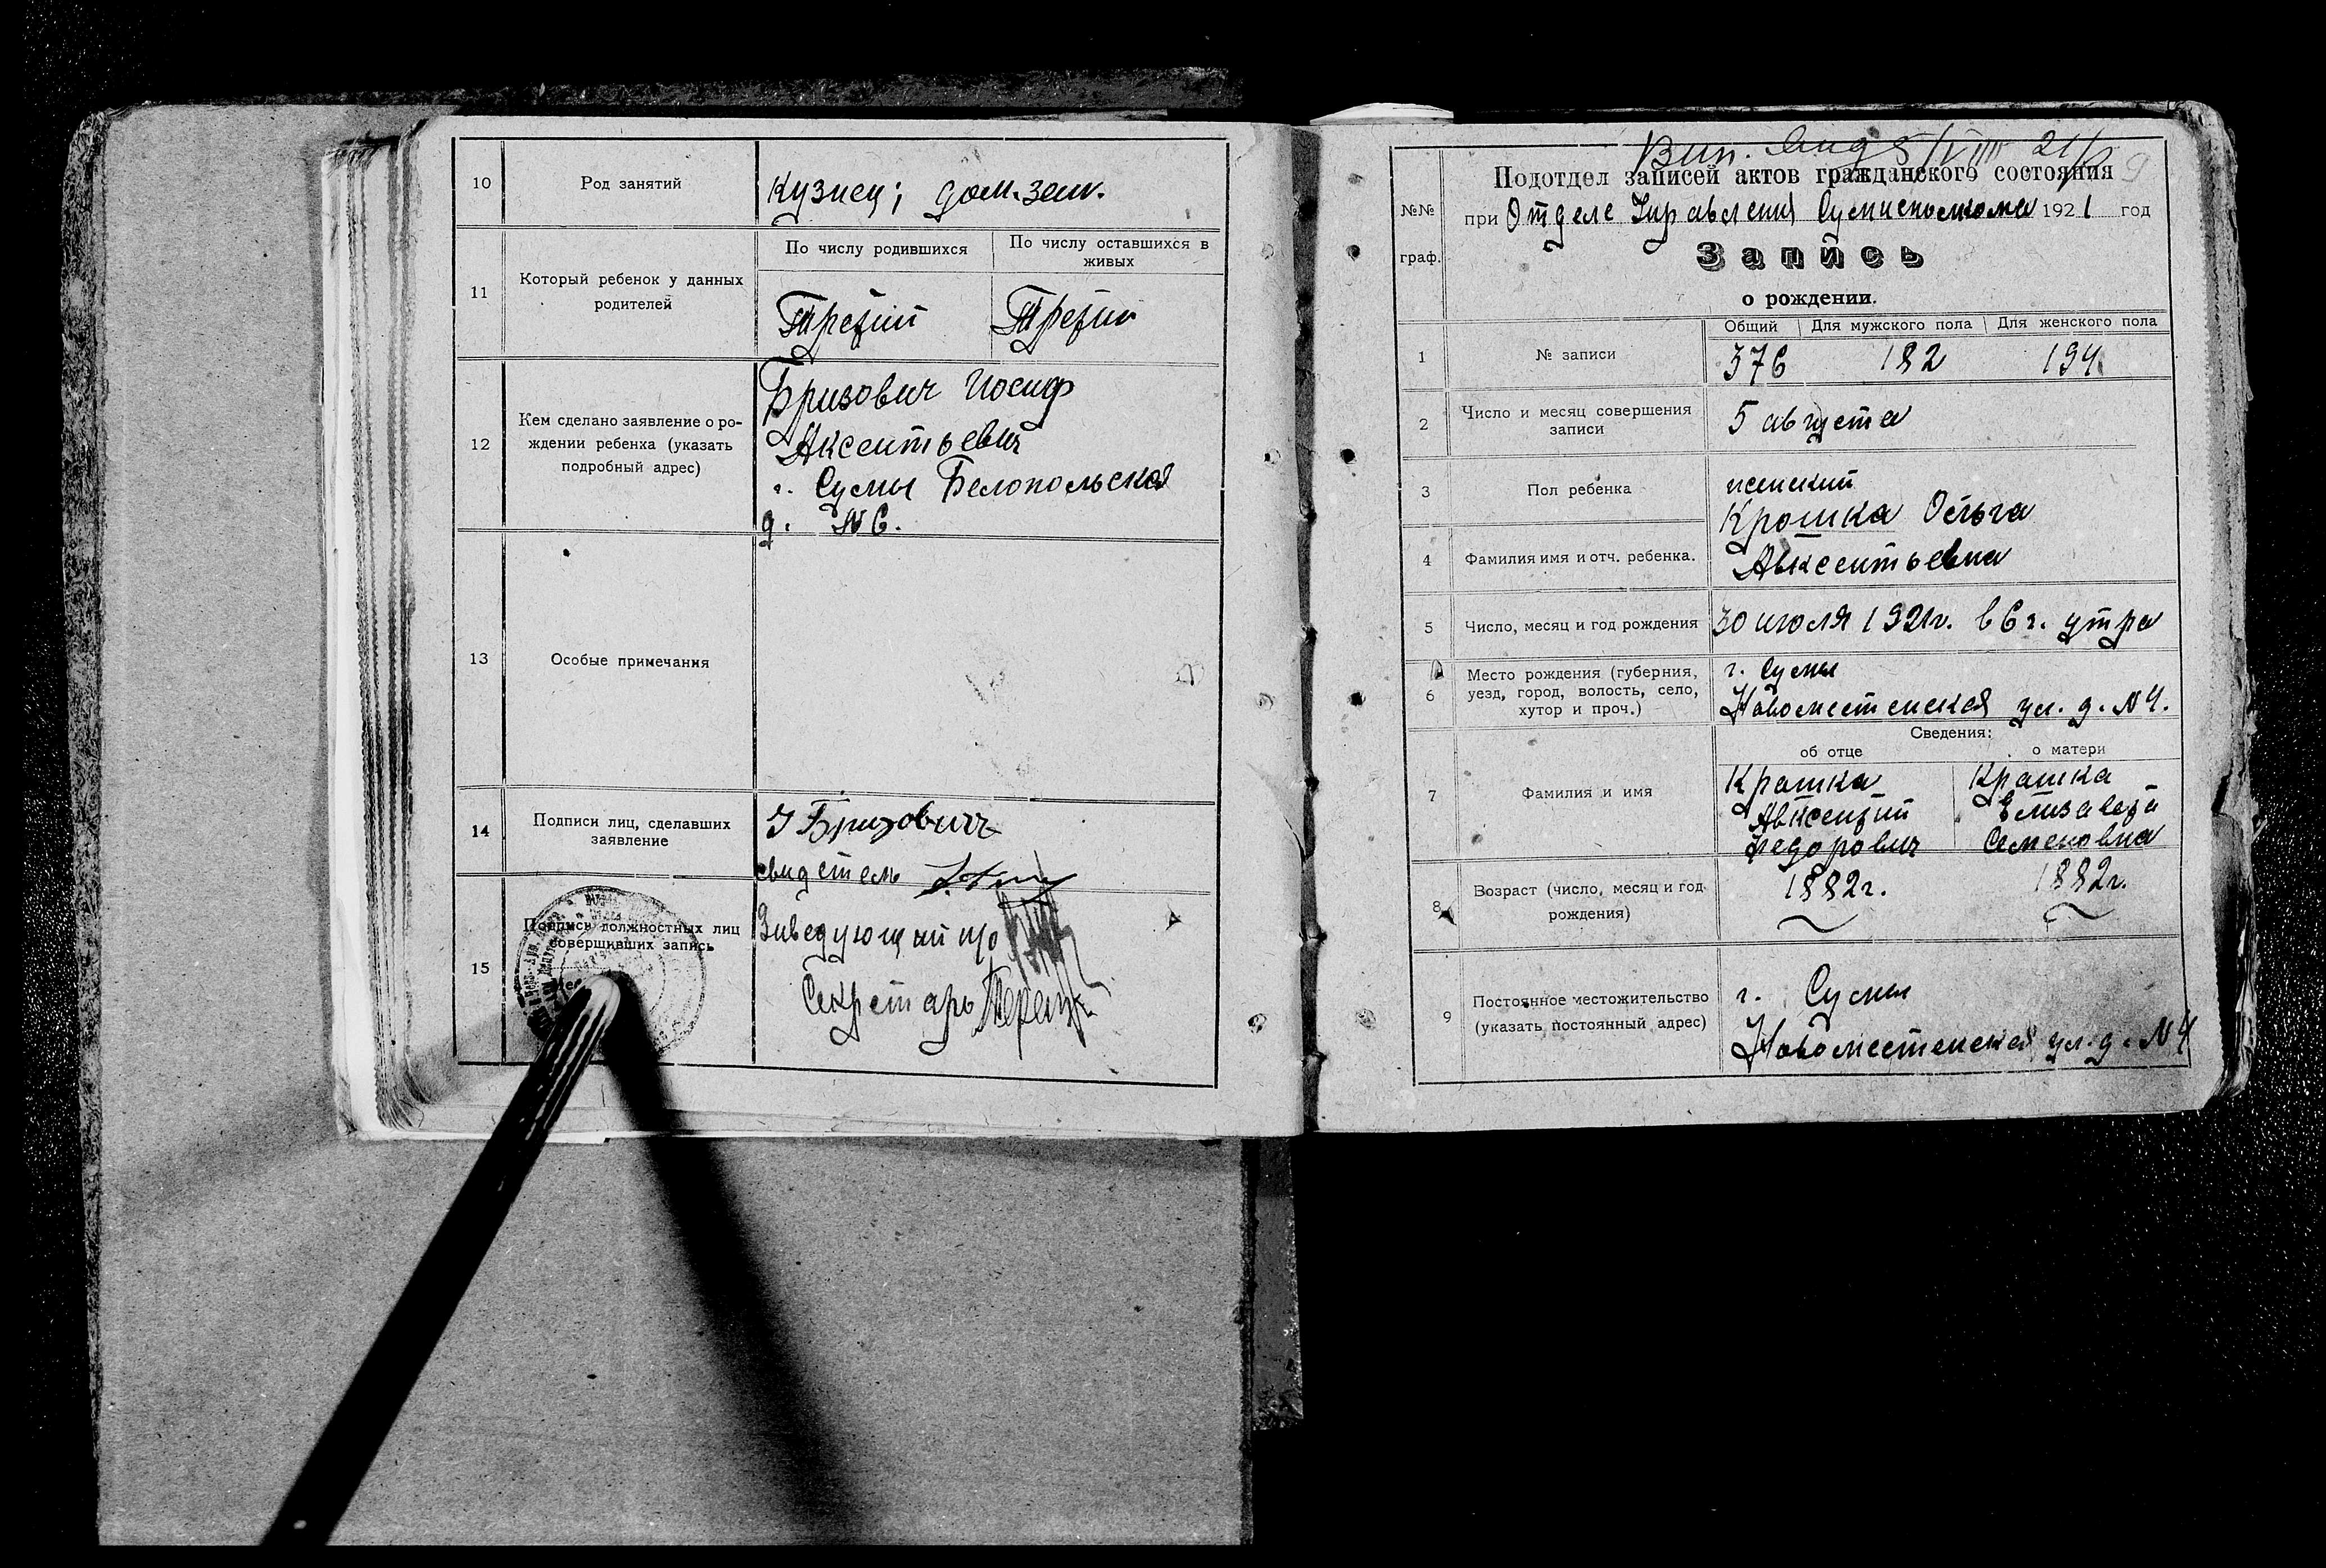 10
Род занятий
кузнец; дом. зан.
11
Который ребенок у данных
родителей
По числу родившихся
По числу оставшихся в
живых
Третий
Третий
12
Кем сделано заявление о ро-
ждении ребенка (указать
подробный адрес)
Бризович Иосиф
Аксентьевич
г. Сумы Белопольская
д. № 6.
13
Особые примечания
14
Подписи лиц, сделавших
заявление
И Бризович
свидетель
15
Подпись должностных лиц
совершивших запись
Заведующий п/о
Секретарь
Подотдел записей актов гражданского состояния
№№
граф.
при Отделе Управления Сумисполкома 1921 год
Запись
о рождении.
Общий
Для мужского пола
Для женского пола
1
№ записи
376
182
194
2
Число и месяц совершения
записи
5 августа
3
Пол ребенка
женский
4
Фамилия имя и отч. ребенка.
Крошка Ольга
Авксентьевна
5
Число, месяц и год рождения
30 июля 1921г. в 6 ч. утра
6
Место рождения (губерния,
уезд, город, волость, село,
хутор и проч.)
г. Сумы
Новоместенская ул. д. № 4.
Сведения:
об отце
о матери
7
Фамилия и имя
Крашка
Авксентий
Федорович
Крашка
Елизавета
Семеновна
8
Возраст (число, месяц и год
рождения)
1882г.
1882г.
9
Постоянное местожительство
(указать постоянный адрес)
г. Сумы
Новоместенская ул. д. № 4